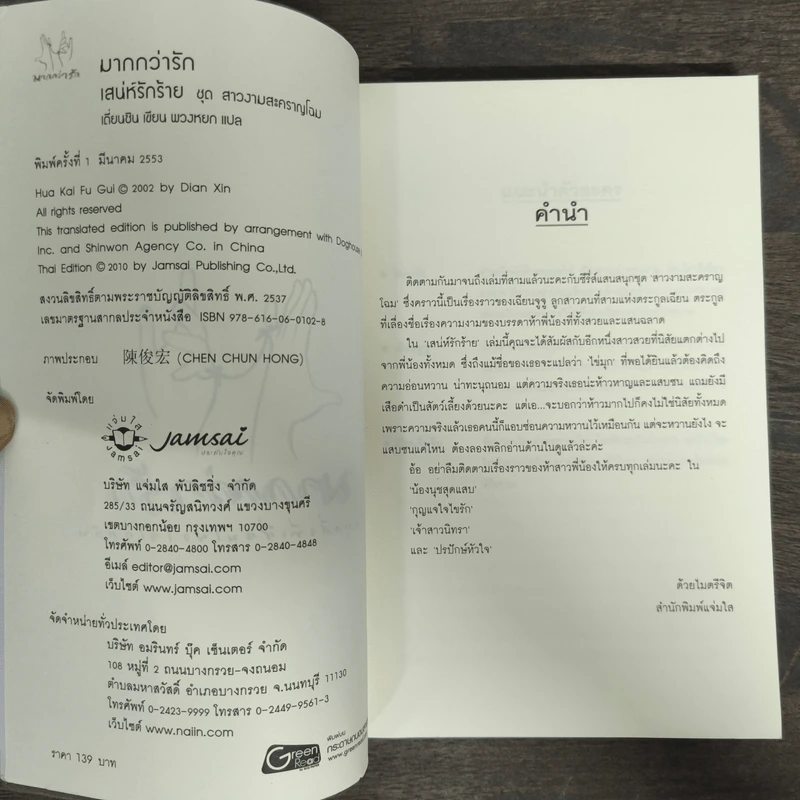 มากกว่ารัก
มากกว่ารัก
เสน่ห์รักร้าย ชุด สาวงามสะคราญโฉม
เตี่ยนซิน เขียน พวงหยก แปล
พิมพ์ครั้งที่ 1 มีนาคม 2553
Hua Kai Fu Gui © 2002 by Dian Xin
All rights reserved
This translated edition is published by arrangement with Doghouse
Inc. and Shinwon Agency Co. in China
Thai Edition © 2010 by Jamsai Publishing Co.,Ltd.
สงวนลิขสิทธิ์ตามพระราชบัญญัติลิขสิทธิ์ พ.ศ. 2537
เลขมาตรฐานสากลประจำหนังสือ ISBN 978-616-06-0102-8
ภาพประกอบ 陳俊宏 (CHEN CHUN HONG)
จัดพิมพ์โดย
แจ่มใส
JAMSAI
Jamsai
ประทับใจคุณ
บริษัท แจ่มใส พับลิชชิ่ง จำกัด
285/33 ถนนจรัญสนิทวงศ์ แขวงบางขุนศรี
เขตบางกอกน้อย กรุงเทพฯ 10700
โทรศัพท์ 0-2840-4800 โทรสาร 0-2840-4848
อีเมล์ editor@jamsai.com
เว็บไซต์ www.jamsai.com
จัดจำหน่ายทั่วประเทศโดย
บริษัท อมรินทร์ บุ๊ค เซ็นเตอร์ จำกัด
108 หมู่ที่ 2 ถนนบางกรวย-จงถนอม
ตำบลมหาสวัสดิ์ อำเภอบางกรวย จ.นนทบุรี 11130
โทรศัพท์ 0-2423-9999 โทรสาร 0-2449-9561-3
เว็บไซต์ www.naiin.com
ราคา 139 บาท
Green
Read
พิมพ์บน
กระดาษถนอม
www.greenrea
คำนำ
ติดตามกันมาจนถึงเล่มที่สามแล้วนะคะกับซีรี่ส์แสนสนุกชุด 'สาวงามสะคราญ
โฉม' ซึ่งคราวนี้เป็นเรื่องราวของเฉียนจูจู ลูกสาวคนที่สามแห่งตระกูลเฉียน ตระกูล
ที่เลื่องชื่อเรื่องความงามของบรรดาห้าพี่น้องที่ทั้งสวยและแสนฉลาด
ใน 'เสน่ห์รักร้าย' เล่มนี้คุณจะได้สัมผัสกับอีกหนึ่งสาวสวยที่นิสัยแตกต่างไป
จากพี่น้องทั้งหมด ซึ่งถึงแม้ชื่อของเธอจะแปลว่า 'ไข่มุก' ที่พอได้ยินแล้วต้องคิดถึง
ความอ่อนหวาน น่าทะนุถนอม แต่ความจริงเธอน่ะห้าวหาญและแสบซน แถมยังมี
เสือดำเป็นสัตว์เลี้ยงด้วยนะคะ แต่เอ...จะบอกว่าห้าวมากไปก็คงไม่ใช่นิสัยทั้งหมด
เพราะความจริงแล้วเธอคนนี้ก็แอบซ่อนความหวานไว้เหมือนกัน แต่จะหวานยังไง จะ
แสบซนแค่ไหน ต้องลองพลิกอ่านด้านในดูแล้วล่ะค่ะ
อ้อ อย่าลืมติดตามเรื่องราวของห้าสาวพี่น้องให้ครบทุกเล่มนะคะ ใน
'น้องนุชสุดแสบ'
'กุญแจใจไขรัก'
'เจ้าสาวนิทรา'
และ 'ปรปักษ์หัวใจ'
ด้วยไมตรีจิต
สำนักพิมพ์แจ่มใส